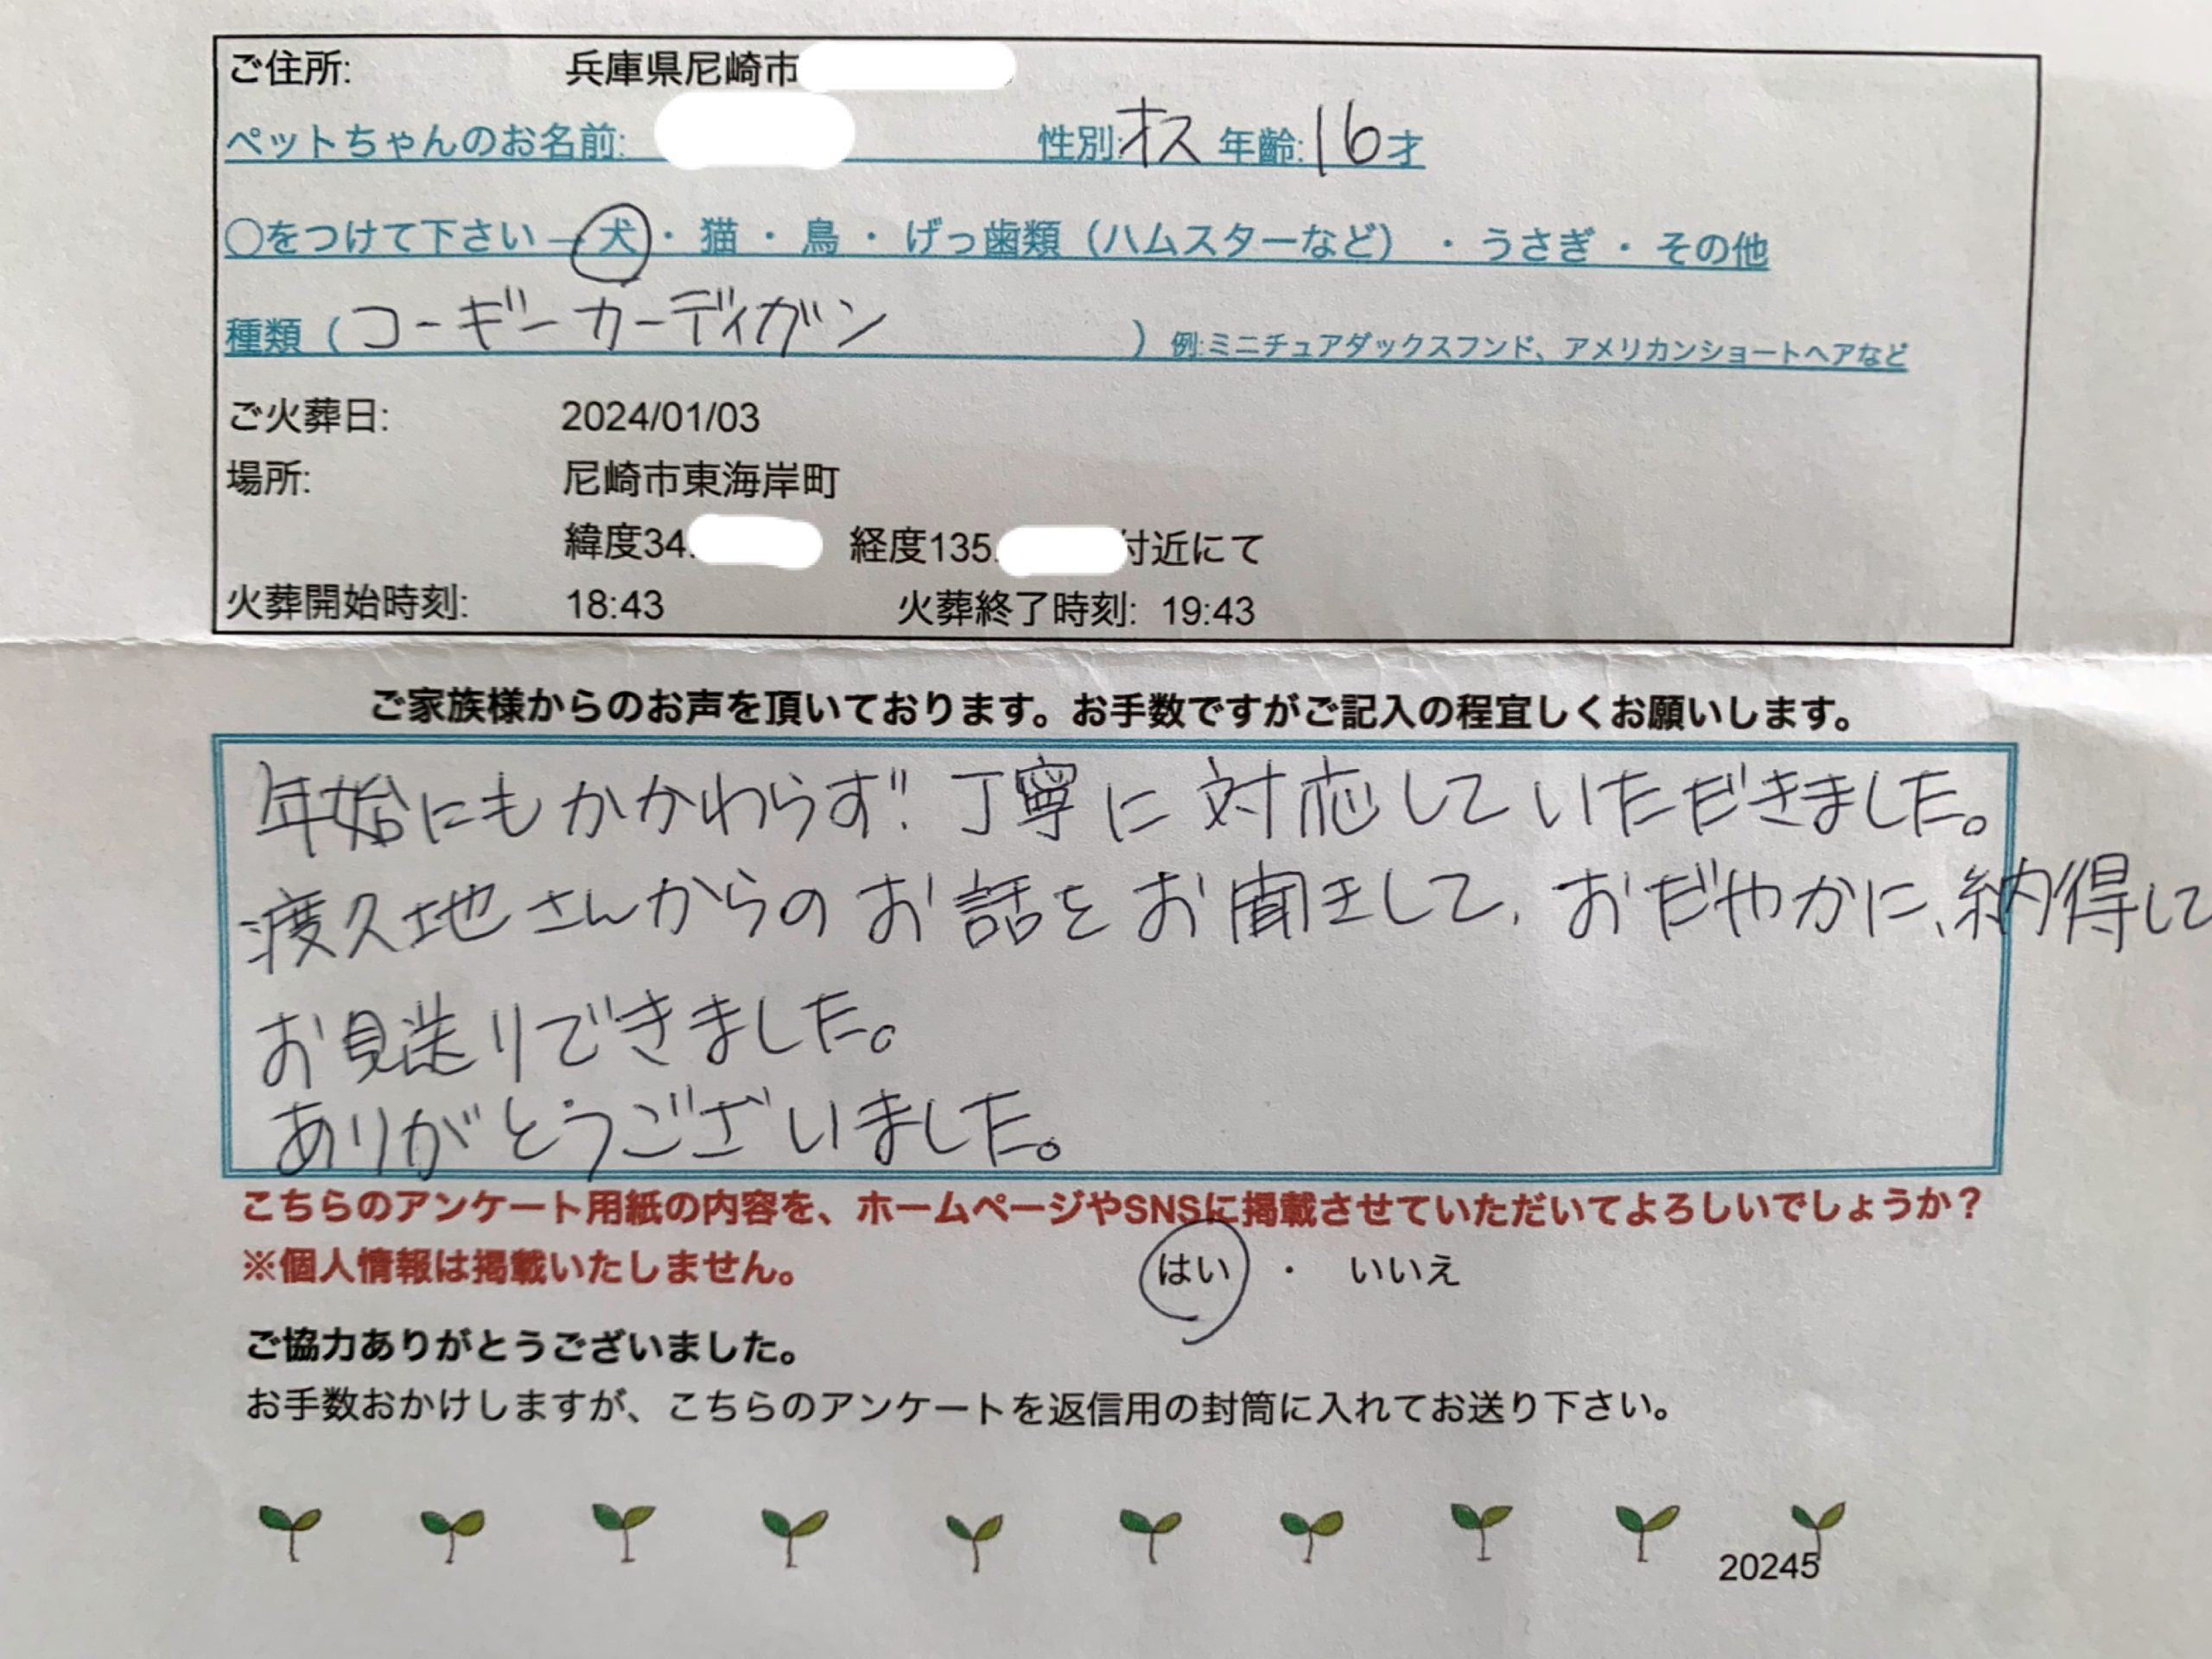 ご住所: 兵庫県尼崎市
ペットちゃんのお名前: 性別:オス 年齢:16才
○をつけて下さい→ 犬 ・ 猫 ・ 鳥 ・ げっ歯類（ハムスターなど） ・ うさぎ ・ その他
種類（ コーギーカーディガン ）例:ミニチュアダックスフンド、アメリカンショートヘアなど
ご火葬日: 2024/01/03
場所: 尼崎市東海岸町
緯度34. 経度135. 付近にて
火葬開始時刻: 18:43 火葬終了時刻: 19:43
ご家族様からのお声を頂いております。お手数ですがご記入の程宜しくお願いします。
年始にもかかわらず!! 丁寧に対応していただきました。
渡久地さんからのお話をお聞きして、おだやかに、納得して
お見送りできました。
ありがとうございました。
こちらのアンケート用紙の内容を、ホームページやSNSに掲載させていただいてよろしいでしょうか？
※個人情報は掲載いたしません。 はい ・ いいえ
ご協力ありがとうございました。
お手数おかけしますが、こちらのアンケートを返信用の封筒に入れてお送り下さい。
20245